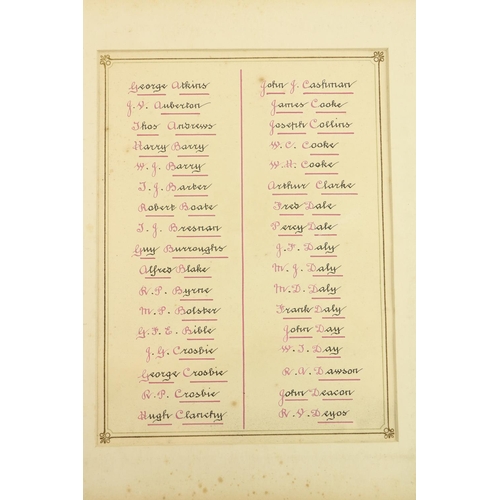 George Atkins
J. V. Auberton
Thos Andrews
Harry Barry
W. J. Barry
T. J. Barter
Robert Boate
T. J. Bresnan
Guy Burroughs
Alfred Blake
R. P. Byrne
M. P. Bolster
G. F. E. Bible
J. G. Crosbie
George Crosbie
R. P. Crosbie
Hugh Clanchy
John J. Cashman
James Cooke
Joseph Collins
W. C. Cooke
W. H. Cooke
Arthur Clarke
Fred Dale
Percy Dale
J. F. Daly
M. J. Daly
M. D. Daly
Frank Daly
John Day
W. T. Day
R. A. Dawson
John Deacon
R. V. Deyos